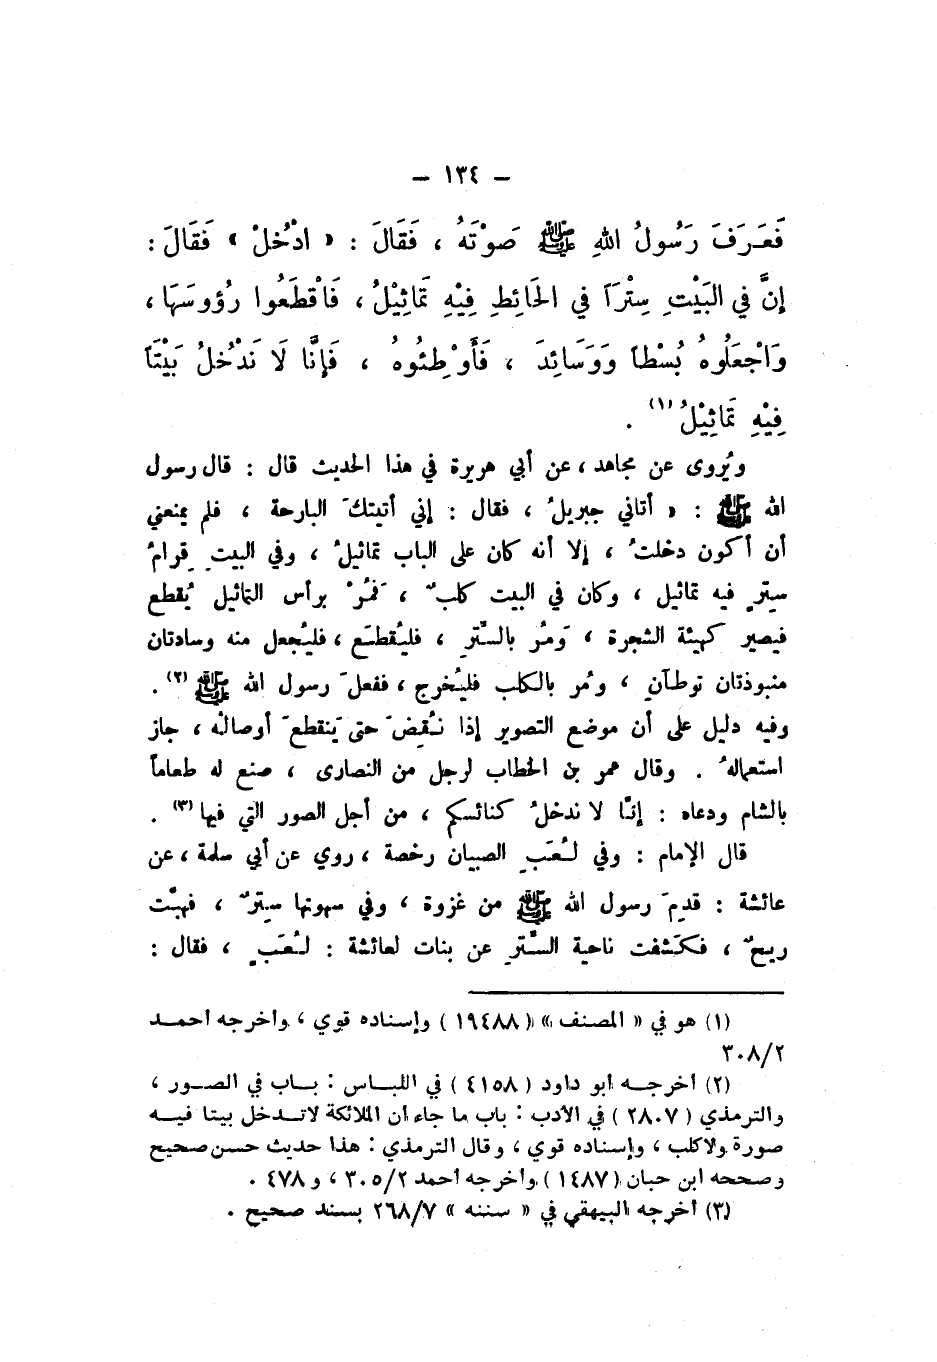 – ١٣٤ –
فَعَرَفَ رَسُولُ اللهِ ﷺ صَوْتَهُ ، فَقَالَ : « ادْخُلْ » فَقَالَ :
إِنَّ فِي البَيْتِ سِتْرَاً فِي الحَائِطِ فِيْهِ تَمَاثِيْلُ ، فَاقْطَعُوا رُؤوسَهَا ،
وَاجْعَلُوهُ بُسْطَاً وَوَسَائِدَ ، فَأَوْطِئُوهُ ، فَإِنَّا لَا نَدْخُلُ بَيْتَاً
فِيْهِ تَمَاثِيْلُ (١) .
ويُروى عن مجاهد ، عن أبي هريرة في هذا الحديث قال : قال رسول
الله ﷺ : « أتاني جبريلُ ، فقال : إني أتيتكَ البارحة ، فلم يمنعني
أن أكون دخلتُ ، إلا أنه كان على الباب تماثيلُ ، وفي البيتِ قِرامُ
سِترٍ فيه تماثيل ، وكان في البيت كلبٌ ، فَمُرْ برأس التماثيل يُقطع
فيصير كهيئة الشجرة ، وَمُر بالسِّترِ ، فليُقطَع ، فليُجعل منه وسادتان
منبوذتان توطآنِ ، ومُر بالكلب فليُخرج ، ففعلَ رسول الله ﷺ (٢) .
وفيه دليل على أن موضع التصوير إذا نُقِضَ حتى يَنقطعَ أوصالُه ، جاز
استعمالهُ . وقال عمر بن الخطاب لرجل من النصارى ، صنع له طعاماً
بالشام ودعاه : إنّا لا ندخلُ كنائسكم ، من أجل الصور التي فيها (٣) .
قال الإمام : وفي لُعَبِ الصبيان رخصة ، روي عن أبي سلمة ، عن
عائشة : قدِمَ رسول الله ﷺ من غزوة ، وفي سهوتها سِترٌ ، فهبَّت
ريحٌ ، فكَشفت ناحية السِّترِ عن بنات لعائشة : لُعَبٍ ، فقال :
(١) هو في « المصنف » (١٩٤٨٨) وإسناده قوي ، وأخرجه أحمد
٣٠٨/٢
(٢) أخرجه أبو داود (٤١٥٨) في اللباس : باب في الصور ،
والترمذي (٢٨٠٧) في الأدب : باب ما جاء أن الملائكة لاتدخل بيتا فيه
صورة ولاكلب ، وإسناده قوي ، وقال الترمذي : هذا حديث حسن صحيح
وصححه ابن حبان (١٤٨٧) وأخرجه أحمد ٣٠٥/٢ ، و ٤٧٨ .
(٣) أخرجه البيهقي في « سننه » ٢٦٨/٧ بسند صحيح .